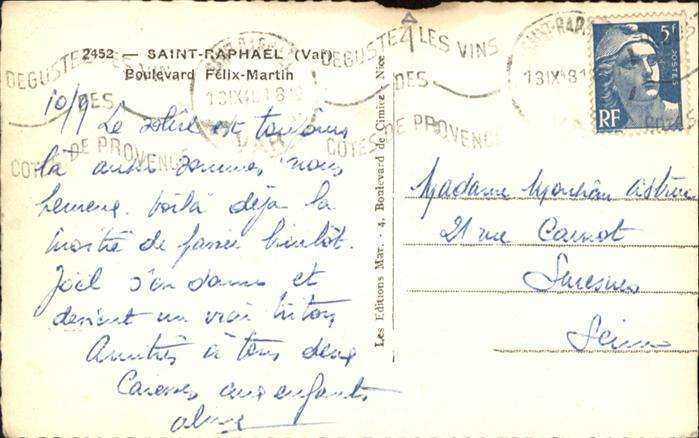 2452 — SAINT-RAPHAEL (Var)
Boulevard Félix-Martin
DEGUSTEZ LES VINS
DES
COTES DE PROVENCE
DEGUSTEZ LES VINS
DES
COTES DE PROVENCE
5F
POSTES
RF
Les Editions Mar. - 4, Boulevard de Cimiez - Nice
10/9 Le soleil est toujours
là aussi sommes nous
heureux. Voilà déjà la
moitié de passée bientôt.
Joël s'en donne et
devient un vrai triton
Amitiés à tous deux
Caresses aux enfants
Madame
21 rue Carnot
Suresnes
Seine